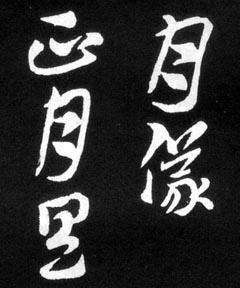 月儀
正月具